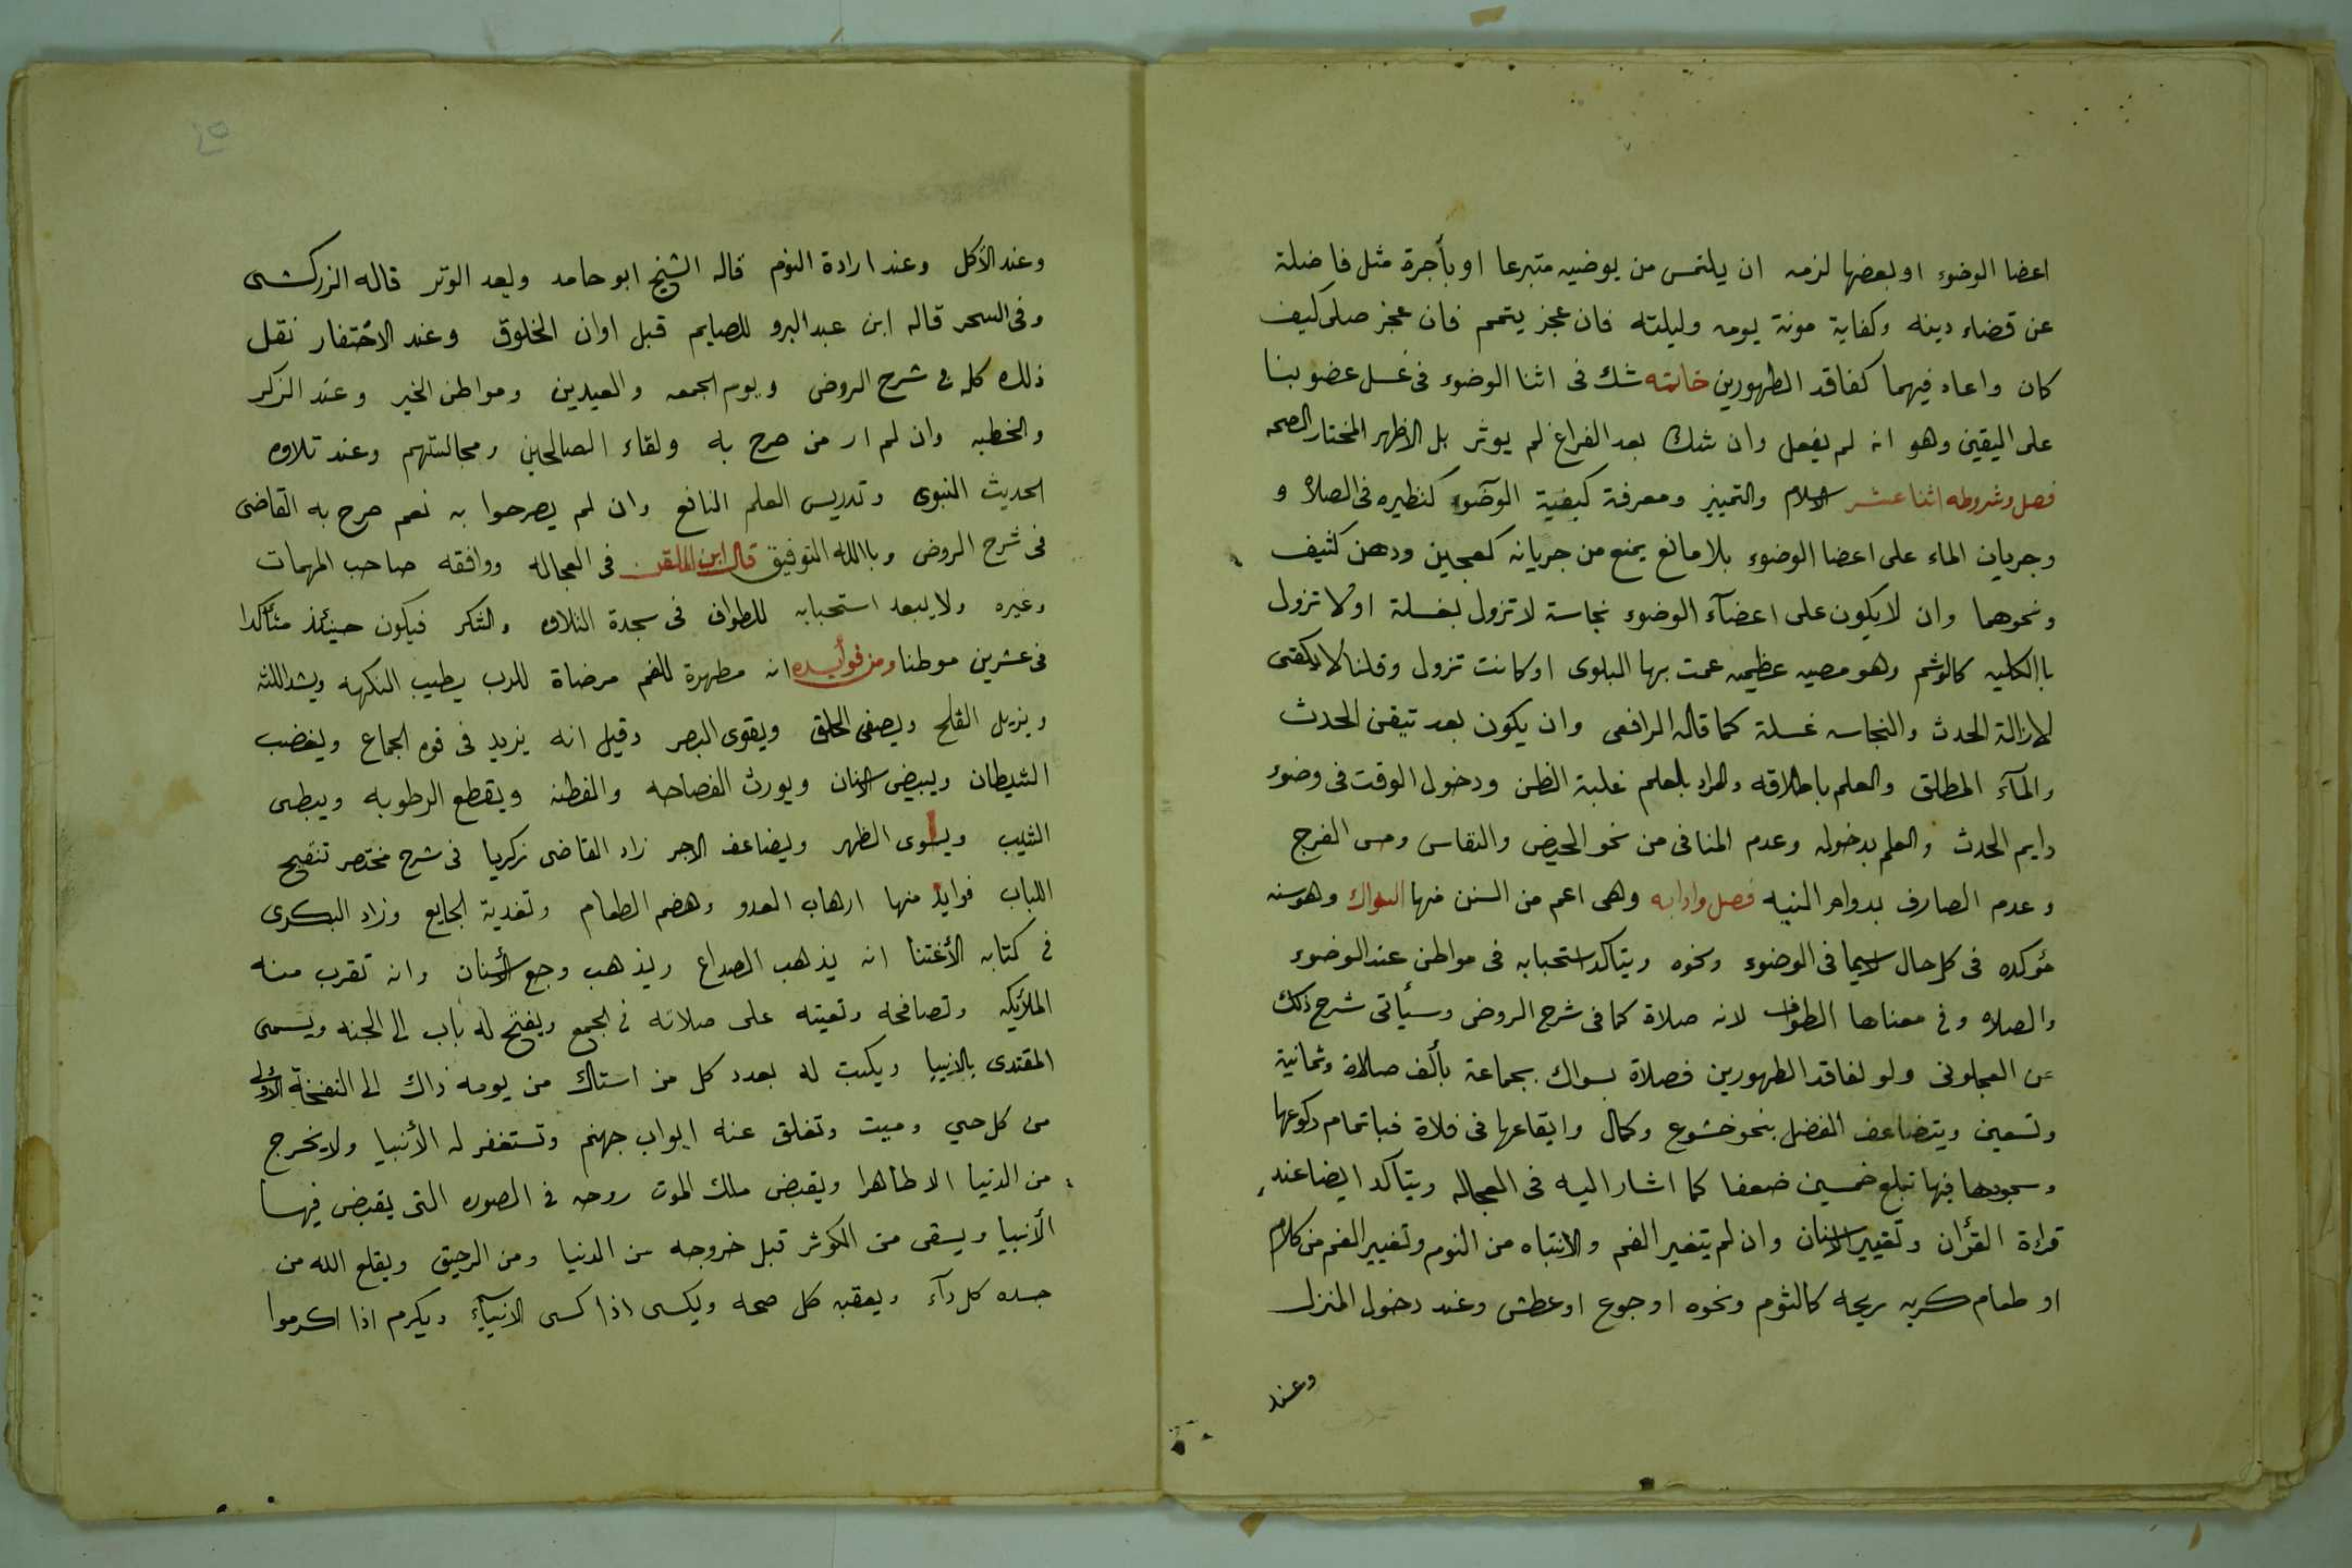 اعضا الوضوء او بعضها لزمه ان يلتمس من يوضيه متبرعا او بأجرة مثل فاضلة
عن قضاء دينه وكفاية مونة يومه وليلته فان عجز يتمم فان عجز صلى كيف
كان واعاد فيهما كفاقد الطهورين خاتمه شك فى اثنا الوضوء فى غسل عضو بنا
على اليقين وهو انه لم يفعل وان شك بعد الفراغ لم يوثر بل الاظهر المختار الصحه
فصل وشروطه اثنا عشر الاسلام والتمييز ومعرفة كيفية الوضوء كنظيره فى الصلاة و
وجريان الماء على اعضا الوضوء بلا مانع يمنع من جريانه كعجين ودهن كثيف
ونحوهما وان لا يكون على اعضآء الوضوء نجاسة لا تزول بغسلة اولا تزول
باالكليه كالوشم وهو مصيبه عظيمه عمت بها البلوى او كانت تزول وقلنا لا يكفى
لازالة الحدث والنجاسه غسلة كما قاله الرافعى وان يكون بعد تيقن الحدث
والمآء المطلق والعلم باطلاقه والمراد بلعلم غلبة الظن ودخول الوقت فى وضوء
دايم الحدث والعلم بدخوله وعدم المنافى من نحو الحيض والنفاس ومس الفرج
وعدم الصارف بدوام النيه فصل وادابه وهى اعم من السنن فمنها السواك وهو سنه
مؤكده فى كل حال لاسيما فى الوضوء ونحوه ويتاكد استحبابه فى مواطن عند الوضوء
والصلاه وفى معناها الطواف لانه صلاة كما فى شرح الروض وسيأتى شرح ذلك
عن العجلونى ولو لفاقد الطهورين فصلاة بسواك بجماعة بألف صلاة وثمانية
وتسعين ويتضاعف الفضل بنحو خشوع وكمال وايقاعها فى فلاة فباتمام ركوعها
وسجودها فيها تبلغ خمسين ضعفا كما اشار اليه فى العجاله ويتآكد ايضا عند
قراءة القرأن وتغيير الاسنان وان لم يتغير الفم والانتباه من النوم وتغيير الفم من كلام
او طعام كريه ريحه كالثوم ونحوه او جوع او عطش وعند دخول المنزل
وعند
وعند الأكل وعند ارادة النوم قاله الشيخ ابو حامد وبعد الوتر قاله الزركشى
وفى السحر قاله ابن عبد البر و للصايم قبل اوان الخلوق وعند الاحتضار نقل
ذلك كله فى شرح الروض ويوم الجمعه والعيدين ومواطن الخير وعند الذكر
والخطبه وان لم ار من صرح به ولقاء الصالحين ومجالستهم وعند تلاوه
الحديث النبوى وتدريس العلم النافع وان لم يصرحوا به نعم صرح به القاضى
فى شرح الروض وباالله التوفيق قال ابن الملقن فى العجاله ووافقه صاحب المهمات
وغيره ولا يبعد استحبابه للطواف فى سجدة التلاوه والشكر فيكون حينئذ متأكدا
فى عشرين موطنا ومن فوأيده انه مطهرة للفم مرضاة للرب يطيب النكهه ويشد اللثه
ويزيل القلح ويصفى الحلق ويقوى البصر وقيل انه يزيد فى قوم الجماع ويغضب
الشيطان ويبيض الاسنان ويورث الفصاحه والفطنه ويقطع الرطوبه ويبطى
الشيب ويسوى الظهر ويضاعف الاجر زاد القاضى زكريا فى شرح مختصر تنقيح
اللباب فوايد منها ارهاب العدو وهضم الطعام وتغدية الجايع وزاد البكرى
فى كتابه الأغتنا انه يذهب الصداع ويذهب وجع الأسنان وانه تقرب منه
الملأيكه وتصافحه وتعيته على صلاته فى الجمع ويفتح له باب الى الجنه ويسمى
المقتدى بالانبيا ويكتب له بعدد كل من استاك من يومه ذاك الى النفخة الأولى
من كل حي وميت وتغلق عنه ابواب جهنم وتستغفر له الأنبيا ولا يخرج
من الدنيا الا طاهرا ويقبض ملك الموت روحه فى الصوره التى يقبض فيها
الأنبيا ويسقى من الكوثر قبل خروجه من الدنيا ومن الرحيق ويقلع الله من
جسده كل دآء ويعقبه كل صحه ويكسى اذا كسى الانبيآء ويكرم اذا اكرموا